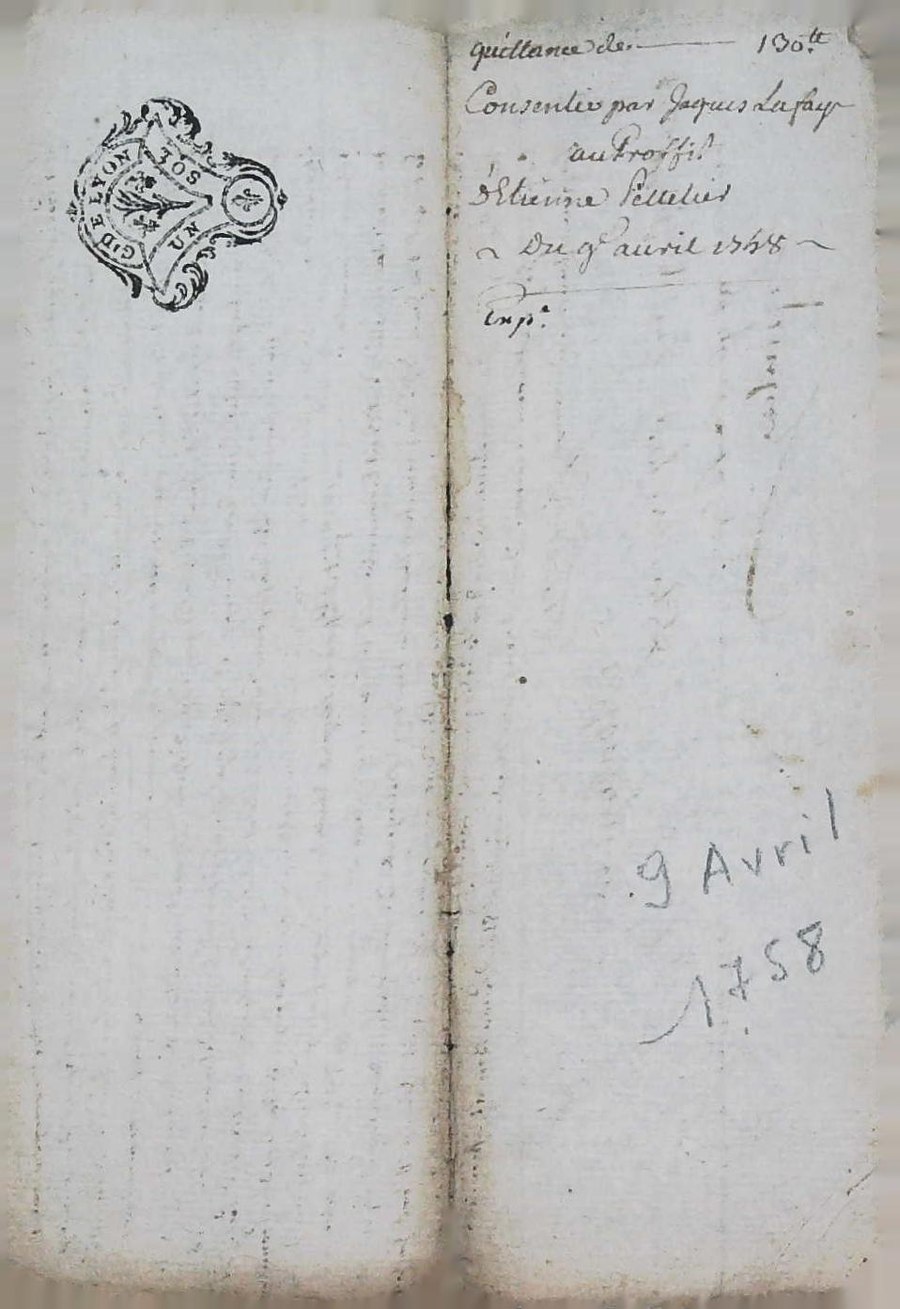 G^D E LYON
UN SOL
quittance de 130^tt
Consentie par Jaques Lafay
au Proffit
d'Etienne Pelletier
Du 9^e avril 1758
Exp.^e
9 Avril
1758